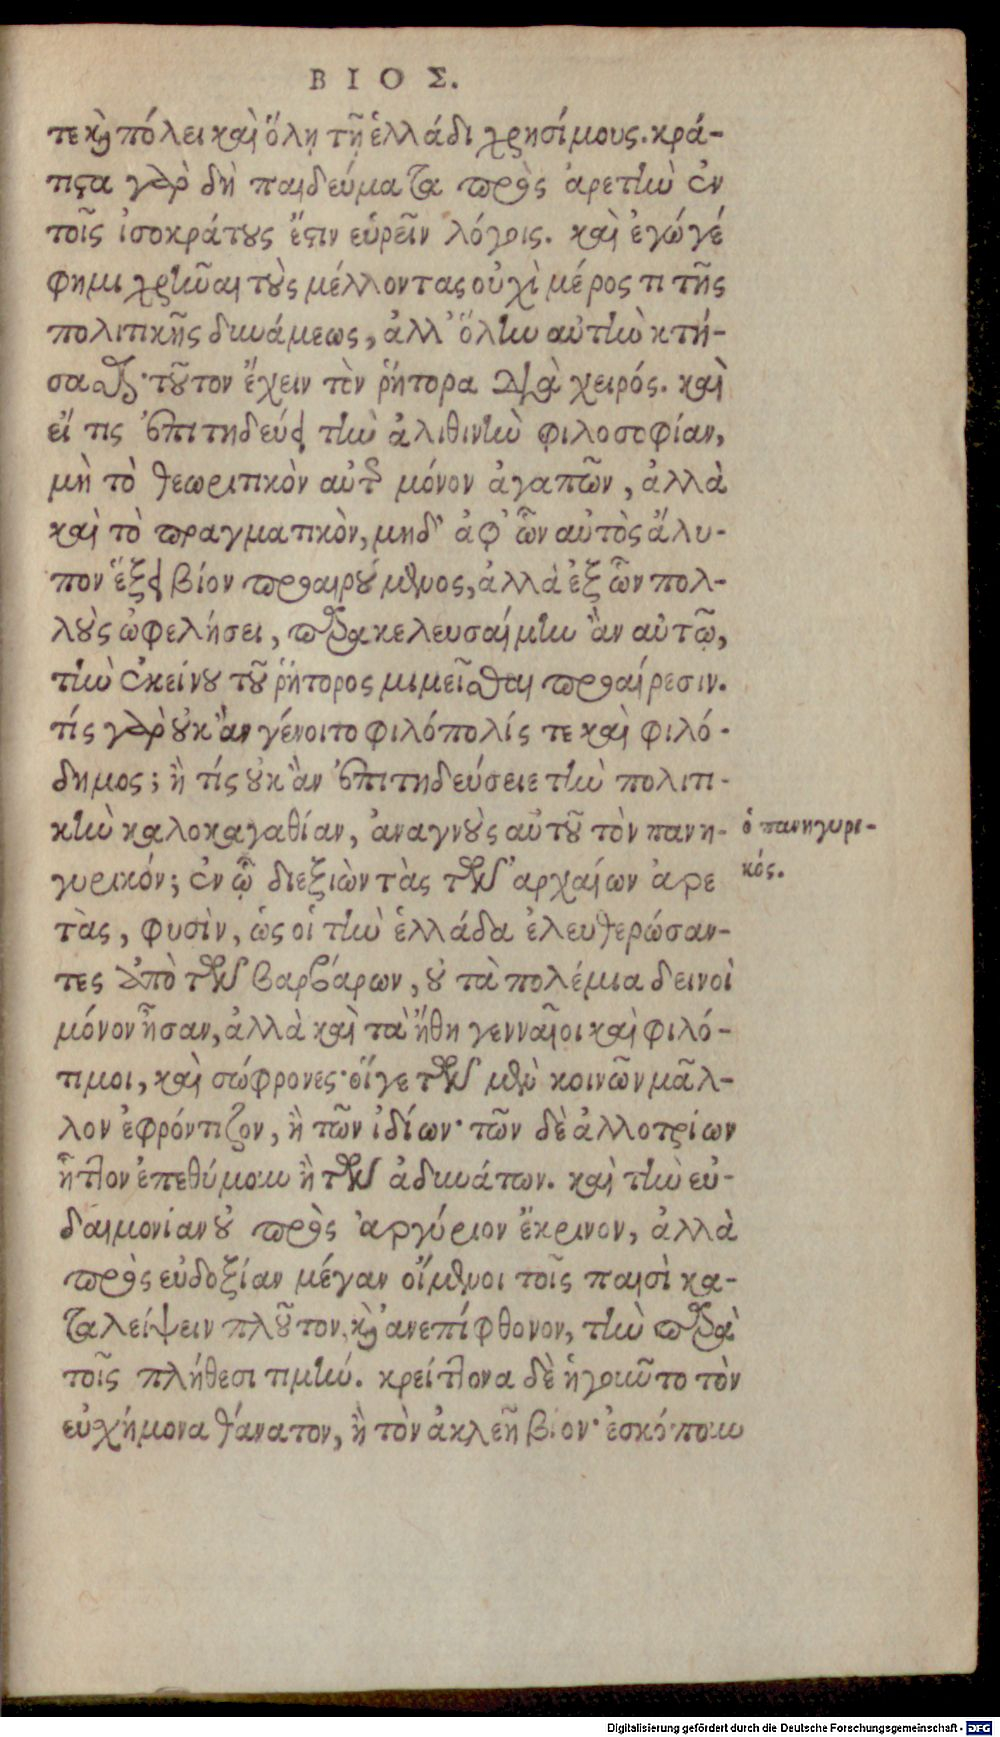 ΒΙΟΣ.
τε καὶ πόλει καὶ ὅλῃ τῇ ἑλλάδι χρησίμους. κρά-
τιστα γὰρ δὴ παιδεύματα πρὸς ἀρετὴν ἐν
τοῖς ἰσοκράτους ἔστιν εὑρεῖν λόγοις. καὶ ἐγώγέ
φημι χρῆναι τοὺς μέλλοντας οὐχὶ μέρος τι τῆς
πολιτικῆς δυνάμεως, ἀλλ' ὅλην αὐτὴν κτή-
σασθαι· τοῦτον ἔχειν τὸν ῥήτορα διὰ χειρός. καὶ
εἴ τις ἐπιτηδεύει τὴν ἀλιθινὴν φιλοσοφίαν,
μὴ τὸ θεωρητικὸν αὐτῆς μόνον ἀγαπῶν, ἀλλὰ
καὶ τὸ πραγματικὸν, μηδ' ἀφ' ὧν αὐτὸς ἄλυ-
πον ἕξει βίον προαιρούμενος, ἀλλὰ ἐξ ὧν πολ-
λοὺς ὠφελήσει, παρακελευσαίμην ἂν αὐτῷ,
τὴν ἐκείνου τοῦ ῥήτορος μιμεῖσθαι προαίρεσιν.
τίς γὰρ οὐκ ἂν γένοιτο φιλόπολίς τε καὶ φιλό-
δημος; ἢ τίς οὐκ ἂν ἐπιτηδεύσειε τὴν πολιτι-
κὴν καλοκαγαθίαν, ἀναγνοὺς αὐτοῦ τὸν πανη-
γυρικόν; ἐν ᾧ διεξιὼν τὰς τῶν ἀρχαίων ἀρε
τὰς, φυσὶν, ὡς οἱ τὴν ἑλλάδα ἐλευθερώσαν-
τες ἀπὸ τῶν βαρβάρων, οὐ τὰ πολέμια δεινοὶ
μόνον ἦσαν, ἀλλὰ καὶ τὰ ἤθη γενναῖοι καὶ φιλό-
τιμοι, καὶ σώφρονες· οἵ γε τῶν μὲν κοινῶν μᾶλ-
λον ἐφρόντιζον, ἢ τῶν ἰδίων· τῶν δὲ ἀλλοτρίων
ἧττον ἐπεθύμουν ἢ τῶν ἀδυνάτων. καὶ τὴν εὐ-
δαιμονίαν οὐ πρὸς ἀργύριον ἔκρινον, ἀλλὰ
πρὸς εὐδοξίαν μέγαν οἴμενοι τοῖς παισὶ κα-
ταλείψειν πλοῦτον, καὶ ἀνεπίφθονον, τὴν παρὰ
τοῖς πλήθεσι τιμήν. κρείττονα δὲ ἡγοῦντο τὸν
εὐχήμονα θάνατον, ἢ τὸν ἀκλεῆ βίον· ἐσκόπουν
ὁ πανηγυρι-
κός.
Digitalisierung gefördert durch die Deutsche Forschungsgemeinschaft - DFG